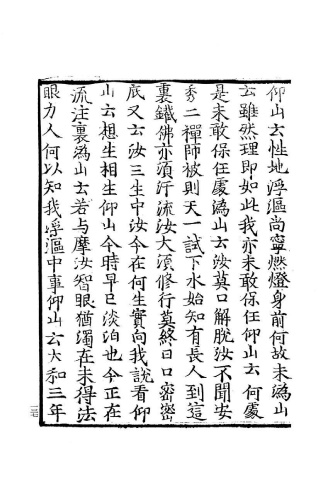 仰山云性地浮漚尚寧燃燈身前何故未溈山
云雖然理即如此我亦未敢保任仰山云何處
是未敢保任處溈山云汝莫口解脫汝不聞安
秀二禪師被則天一試下水始知有長人到這
裏鐵佛亦須汗流汝大須修行莫終日口密密
底又云汝三生中汝今在何生實向我說看仰
山云想生相生仰山今時早已淡泊也今正在
流注裏溈山云若与麼汝智眼猶濁在未得法
眼力人何以知我浮漚中事仰山云大和三年